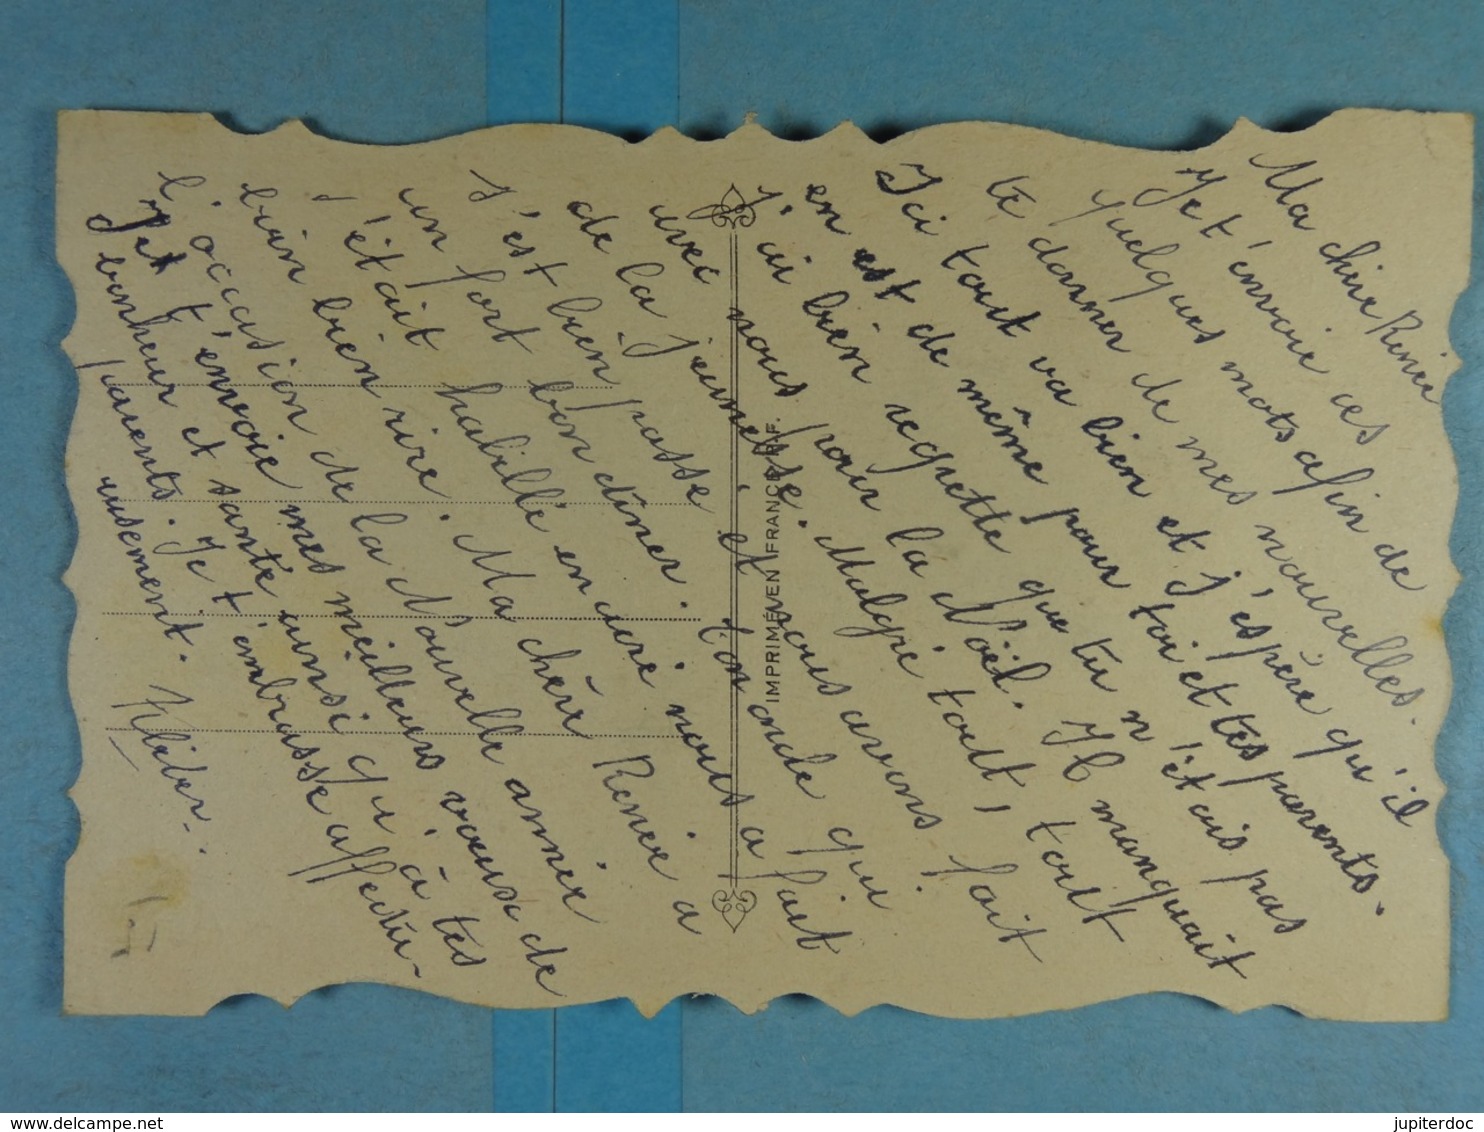 Ma chère Renée
Je t'envoie ces
quelques mots afin de
te donner de mes nouvelles.
Ici tout va bien et j'espère qu'il
en est de même pour toi et tes parents.
J'ai bien regretté que tu n'étais pas
avec nous pour la Noël. Il manquait
de la jeunesse. Malgré tout, tout
s'est bien passé et nous avons fait
un fort bon dîner. Ton oncle qui
s'était habillé en curé nous a fait
bien bien rire. Ma chère Renée à
l'occasion de la Nouvelle année
Je t'envoie mes meilleurs vœux de
bonheur et santé ainsi qu'à tes
parents. Je t'embrasse affectu-
eusement. Kléber.
IMPRIMÉ EN FRANCE
delcampe.net
jupiterdoc